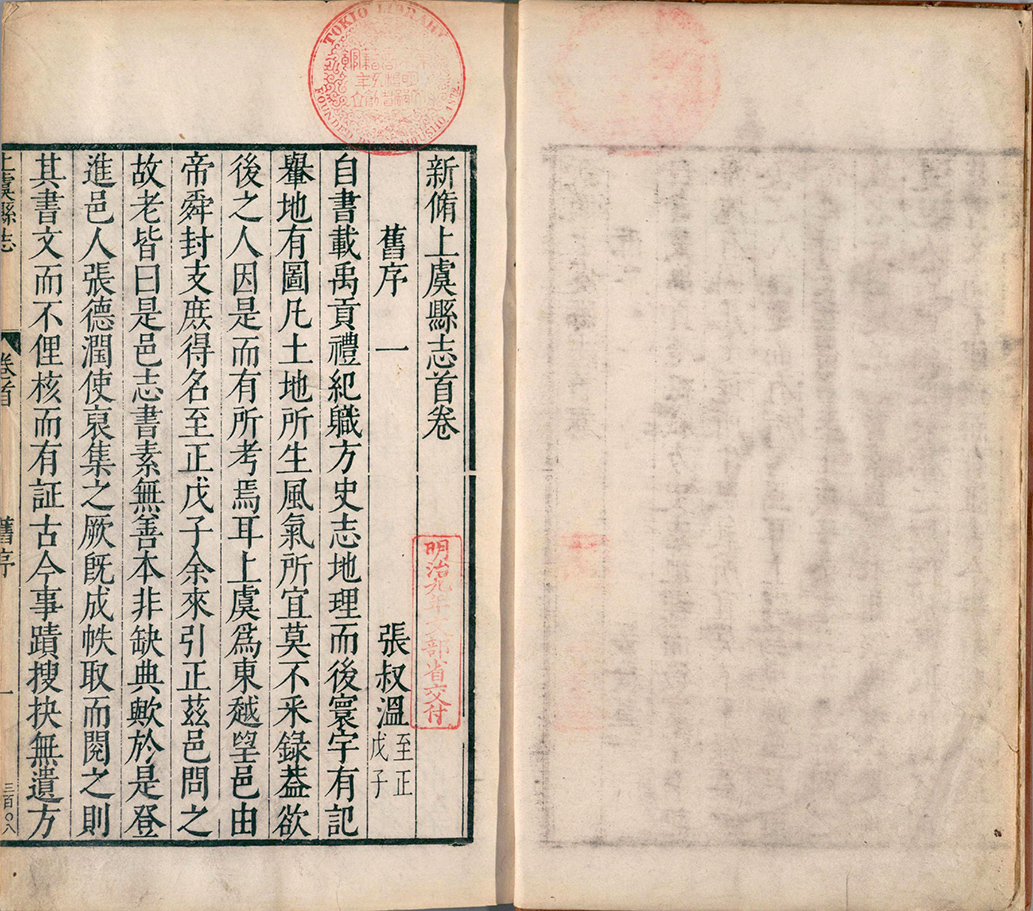 新脩上虞縣志首卷
舊序一 張叔溫 至正戊子
自書載禹貢禮紀職方史志地理而後寰宇有記
轝地有圖凡土地所生風氣所宜莫不采錄葢欲
後之人因是而有所考焉耳上虞為東越望邑由
帝舜封支庶得名至正戊子余來引正茲邑問之
故老皆曰是邑志書素無善本非缺典歟於是登
進邑人張德潤使裒集之厥既成帙取而閱之則
其書文而不俚核而有証古今事蹟搜抉無遺方
上虞縣志 卷首 舊序 一 三百〇八
TOKIO LIBRARY
FOUNDED BY MONBUSHO 1872
明治九年文部省交付